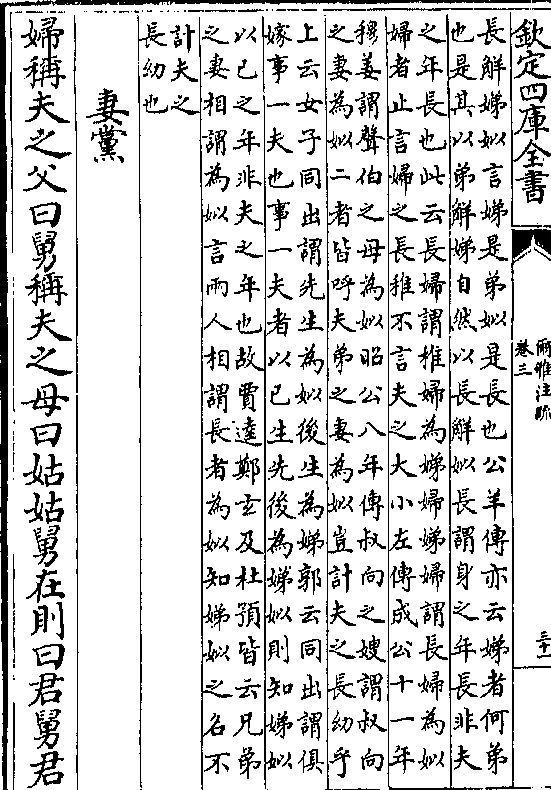 欽定四庫全書
爾雅注疏
卷三
三十一
長解娣姒言娣是弟姒是長也公羊傳亦云娣者何弟
也是其以弟解娣自然以長解姒長謂身之年長非夫
之年長也此云長婦謂稚婦為娣婦娣婦謂長婦為姒
婦者止言婦之長稚不言夫之大小左傳成公十一年
穆姜謂聲伯之母為姒昭公八年傳叔向之嫂謂叔向
之妻為姒二者皆呼夫弟之妻為姒豈計夫之長幼乎
上云女子同出謂先生為姒後生為娣郭云同出謂俱
嫁事一夫也事一夫者以已生先後為娣姒則知娣姒
以已之年非夫之年也故賈逵鄭玄及杜預皆云兄弟
之妻相謂為姒言兩人相謂長者為姒知娣姒之名不
計夫之
長幼也
妻黨
婦稱夫之父曰舅稱夫之母曰姑姑舅在則曰君舅君